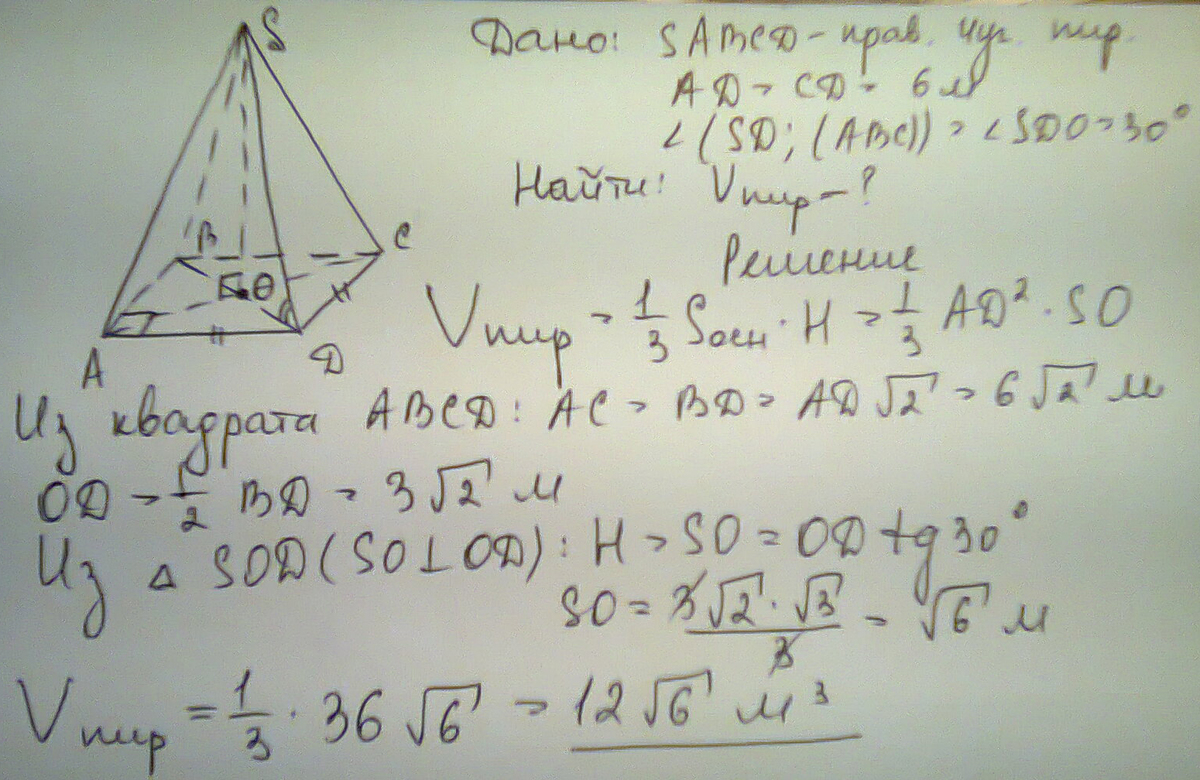 S
Дано: SABCD - прав. чуг. пир.
AD = CD = 6 м
∠(SD; (ABC)) = ∠SDO = 30°
Найти: Vпир - ?
B
C
O
A
D
Решение
Vпир = 1/3 Sосн · H = 1/3 AD² · SO
Из квадрата ABCD: AC = BD = AD√2 = 6√2 м
OD = 1/2 BD = 3√2 м
Из △ SOD (SO⊥OD): H = SO = OD tg 30°
SO = 3√2 · √3 / 3 = √6 м
Vпир = 1/3 · 36√6 = 12√6 м³